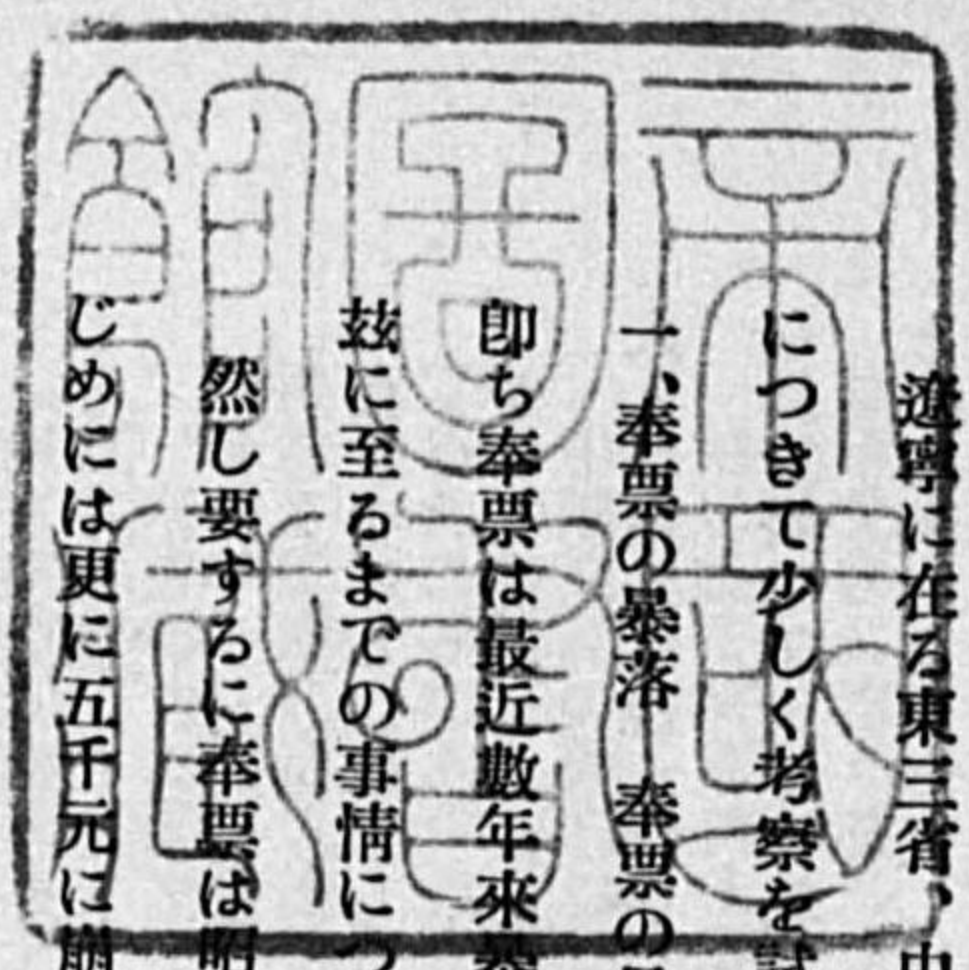 遼寧に在る東三省、
につきて少しく考察を試
一、奉票の暴落　奉票の
卽ち奉票は最近數年來暴
玆に至るまでの事情につ
然し要するに奉票は昭
じめには更に五千元に崩
帝國圖書館藏